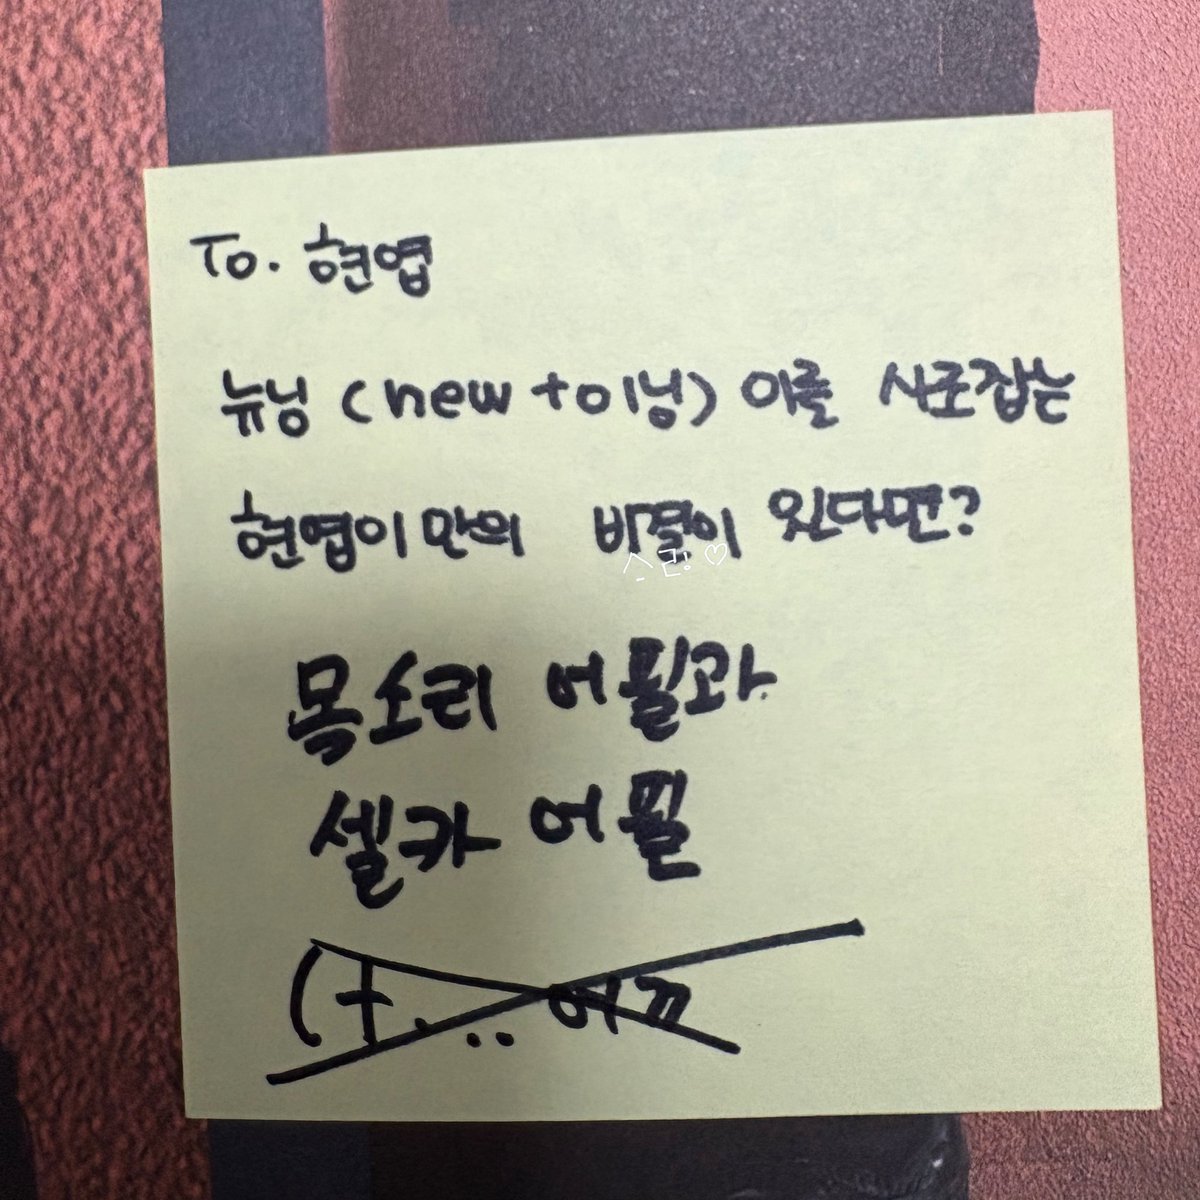 To. 현엽
뉴닝 (new + 이닝) 이를 사로잡는
현엽이만의 비결이 있다면?
스링♡
목소리 어필과
셀카 어필
(+. .. 어깨